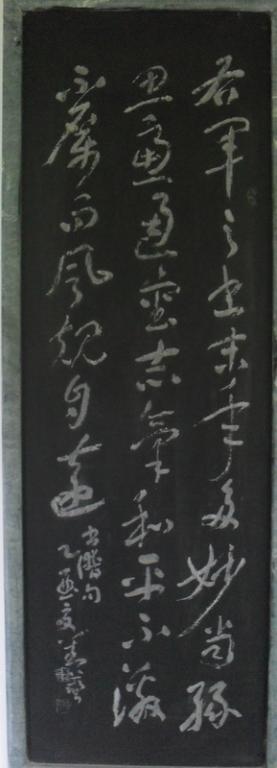 右軍之書末年多妙當緣
思慮通審志氣和平不激
不厲而風規自遠
書譜句
乙酉夏